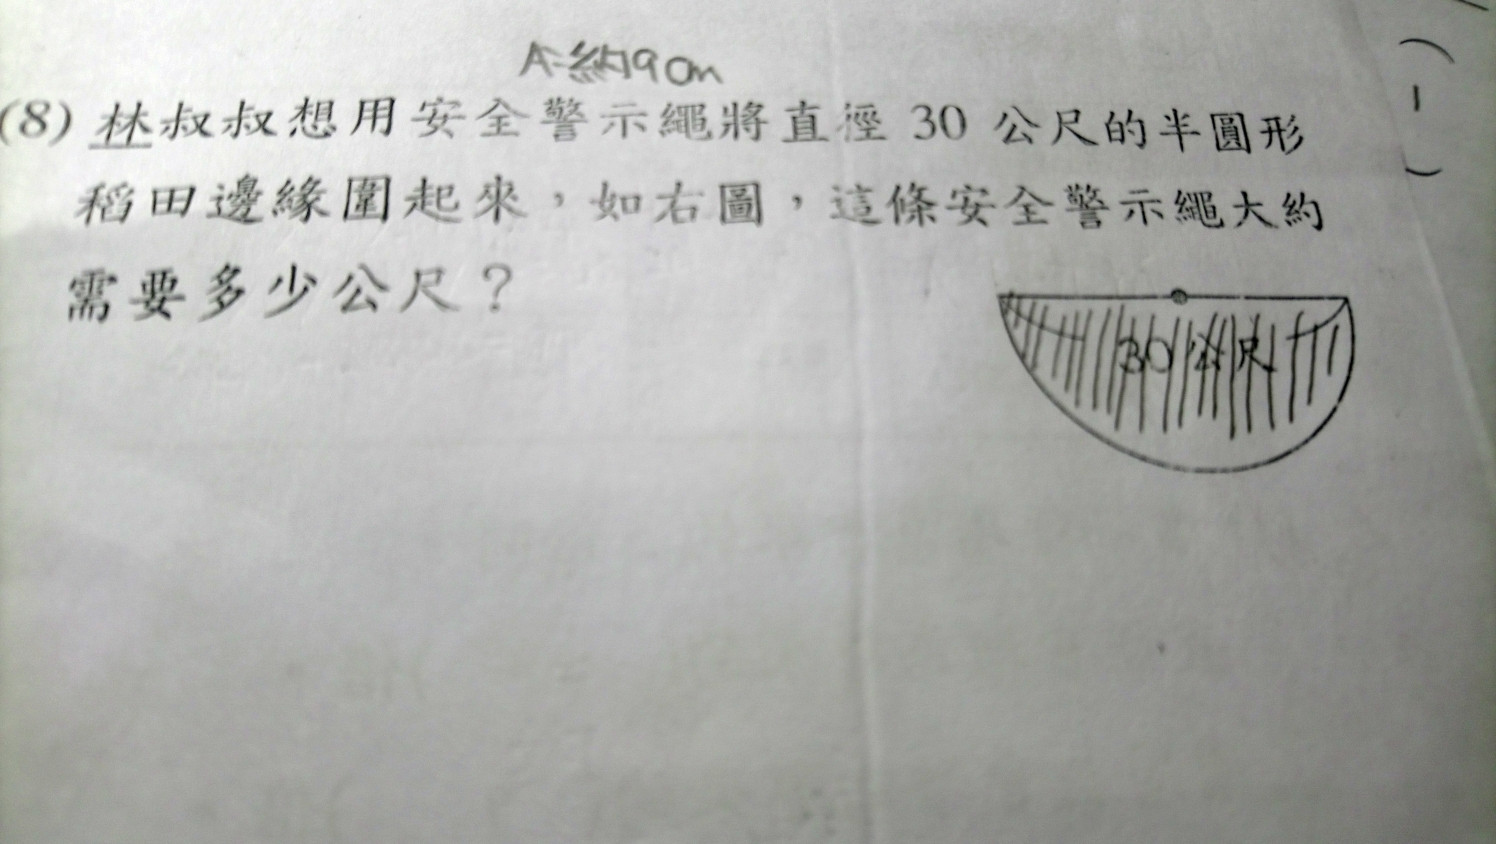 A:約90m
(8) 林叔叔想用安全警示繩將直徑 30 公尺的半圓形
稻田邊緣圍起來，如右圖，這條安全警示繩大約
需要多少公尺？
30 公尺